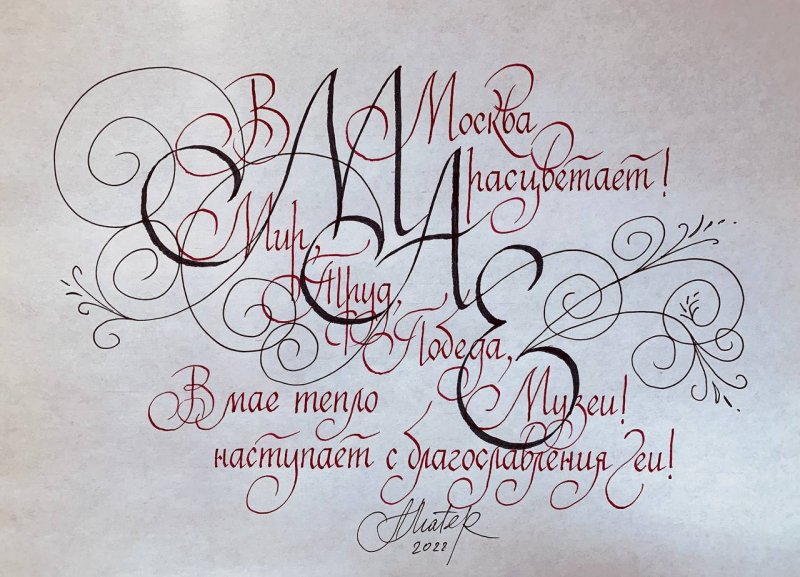 В МАЕ Москва
расцветает!
Мир,
Труд,
Победа,
Музеи!
В мае тепло
наступает с благославления Геи!
2022